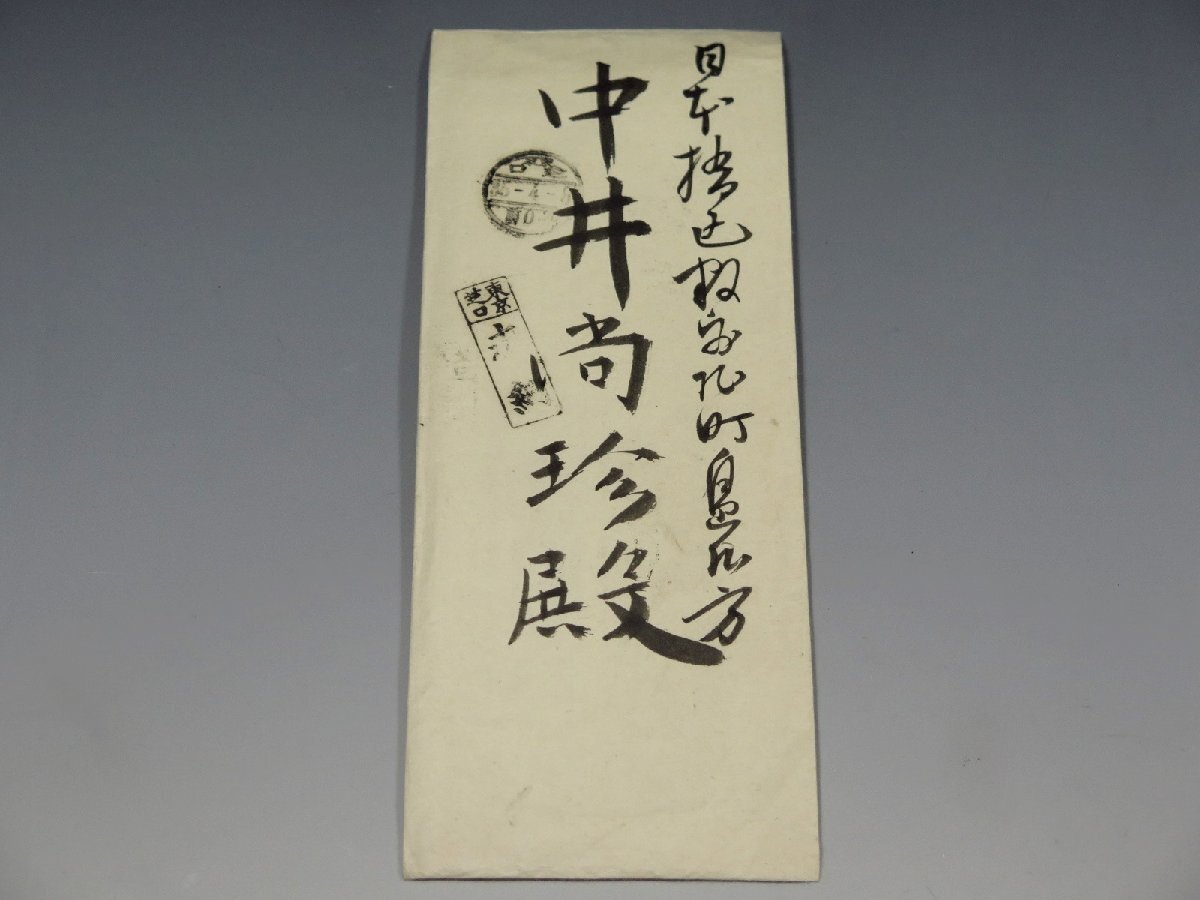 日本橋区数寄屋町島氏方
中井尚珍殿
東京
芝口